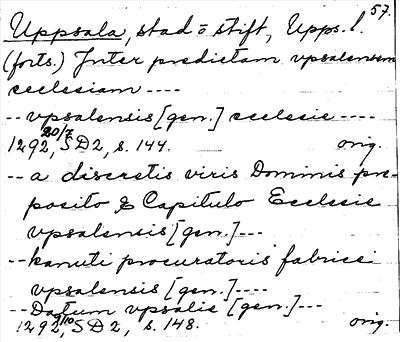 57.
Uppsala, stad o stift, Upps. l.
(forts.) Inter predictam vpsalensem
ecclesiam ----
-- vpsalensis [gen.] ecclesie ----
1292 20/7, SD2, s. 144. orig.
-- a discretis viris Dominis pre-
posito & Capitulo Ecclesie
vpsalensis [gen.] ---
-- kanuti procuratoris fabrice
vpsalensis [gen.] ----
-- Datum vpsalie [gen.] ---
1292 9/10, SD2, s. 148. orig.